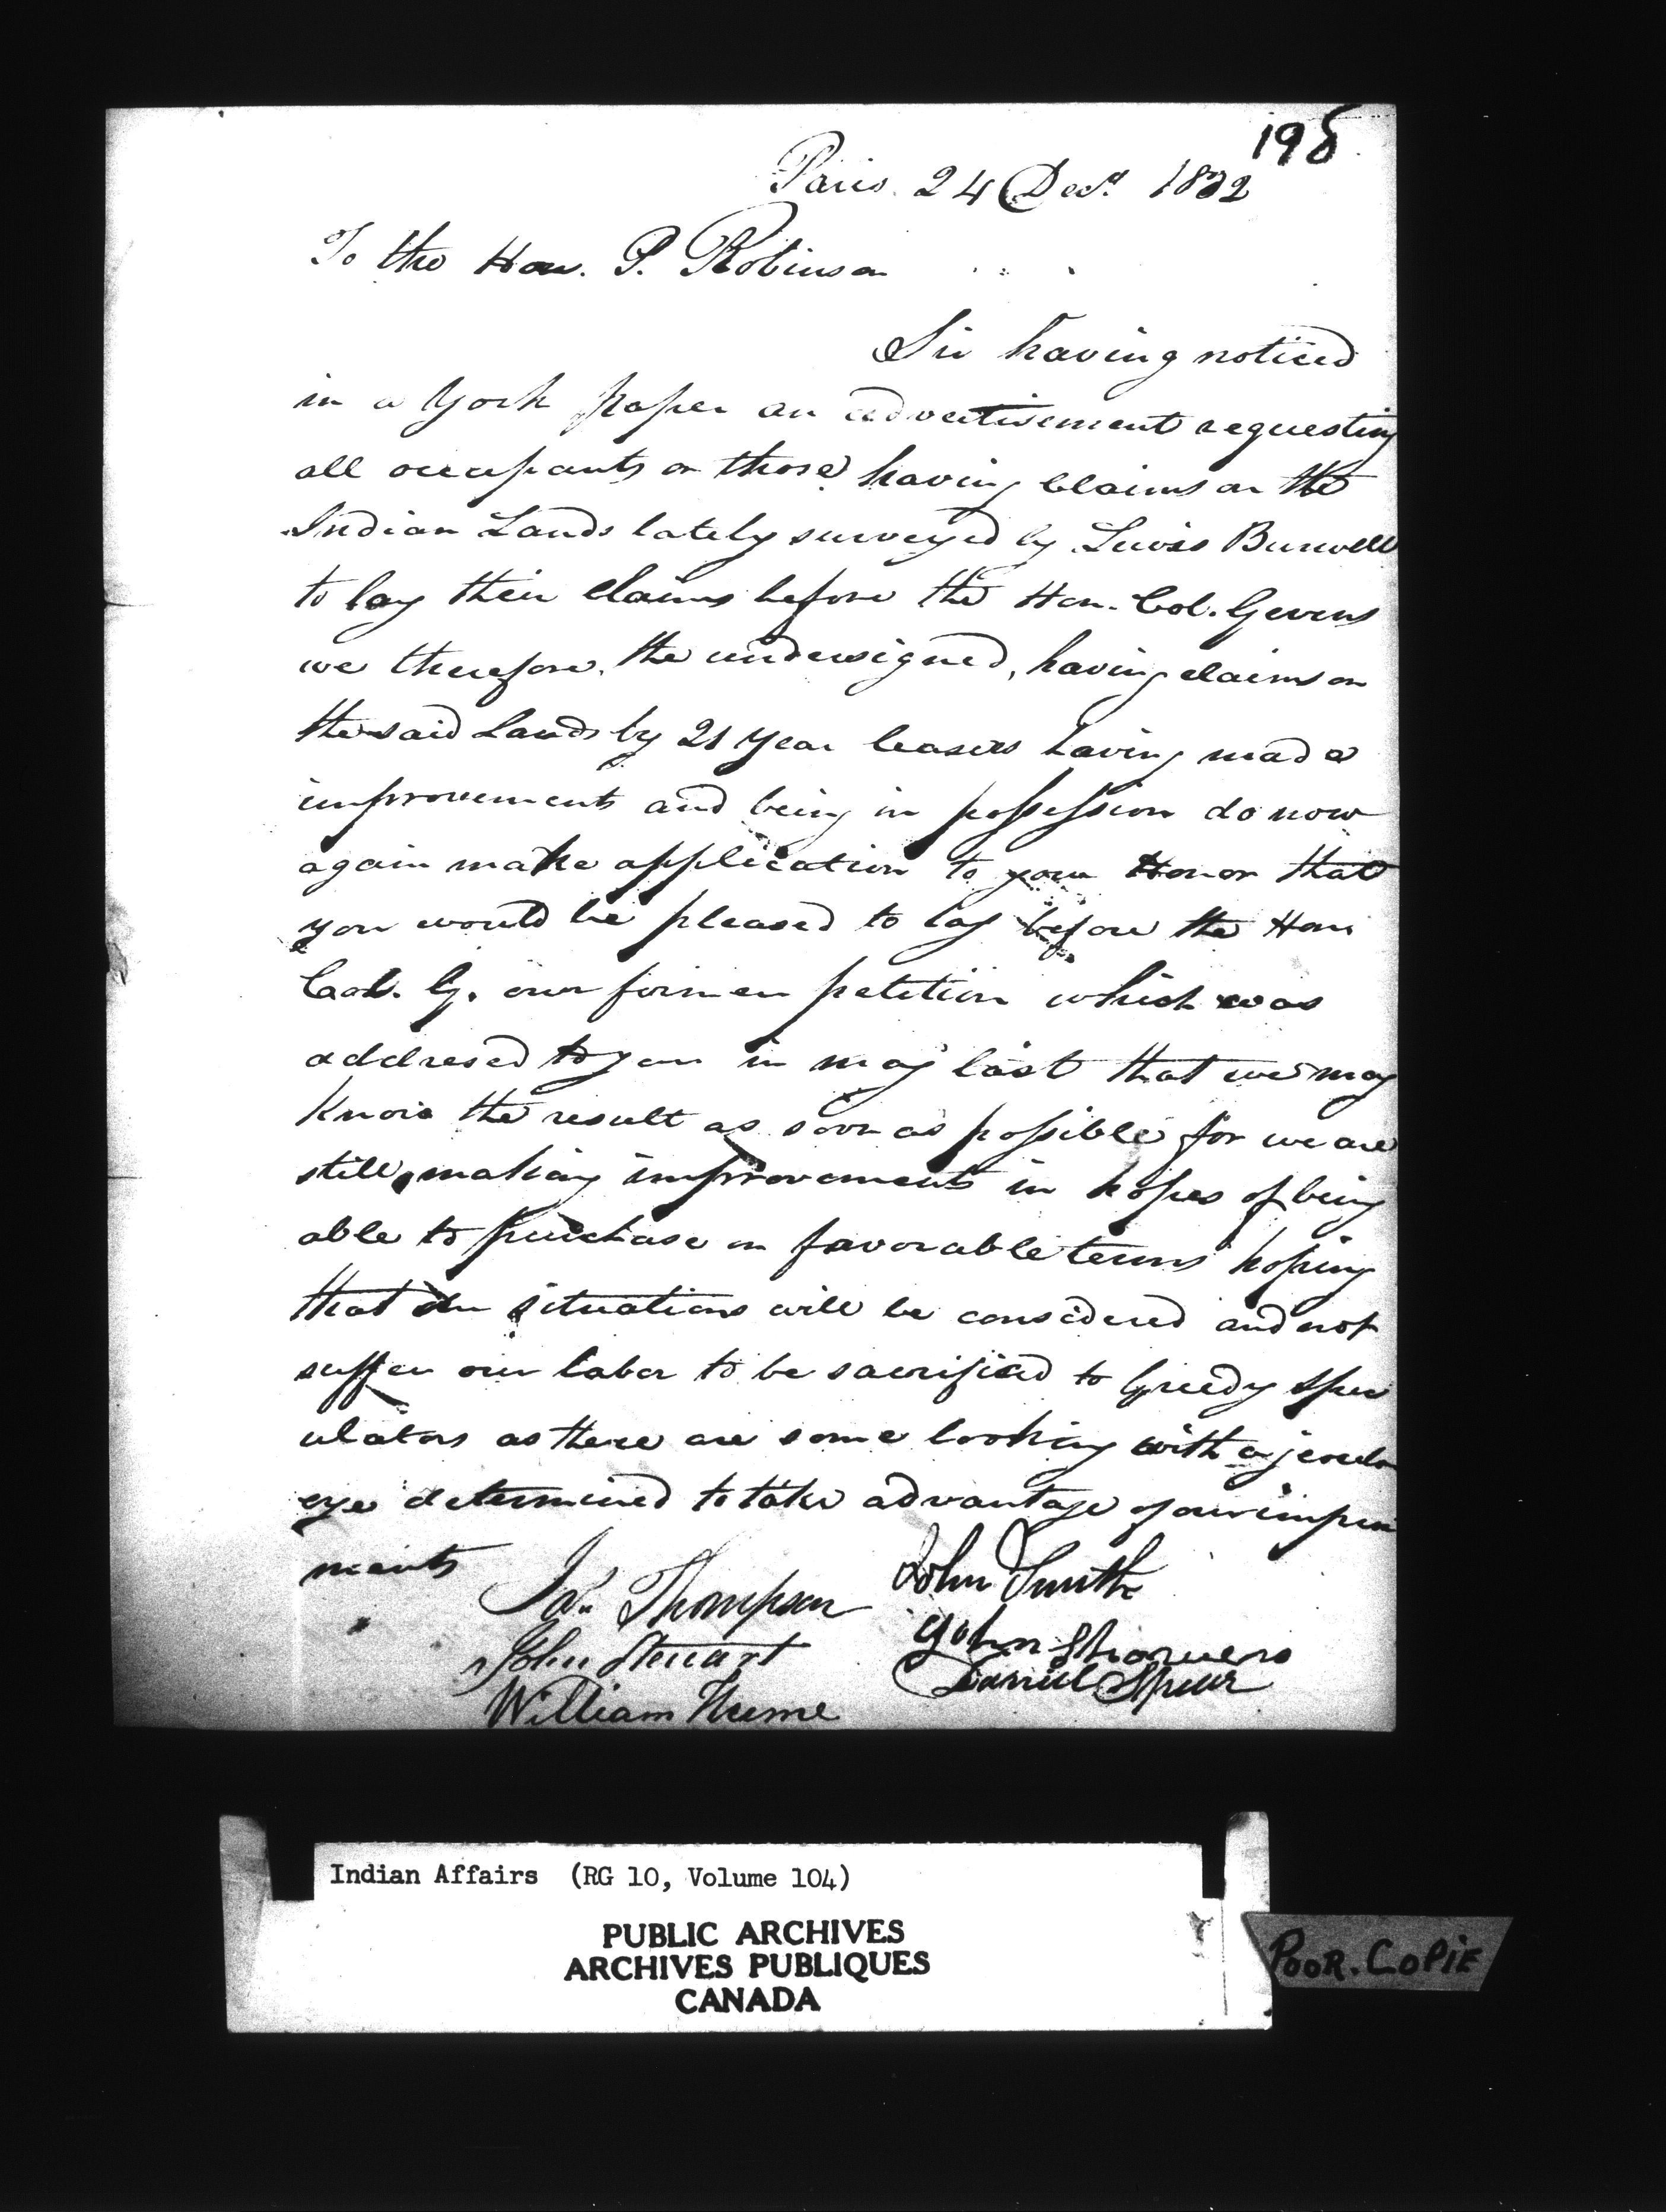 198
Paris 24 Decr 1832
To the Hon. P. Robinson
Sir having noticed
in a York paper an advertisement requesting
all occupants or those having claims on the
Indian Lands lately surveyed by Lewis Burwell
to lay their claims before the Hon. Col. Givens
we therefore the undersigned, having claims on
the said Lands by 21 year leases having made
improvements and being in possession do now
again make application to your Honor that
you would be pleased to lay before the Hon
Col. G. our former petition which was
addresed to you in may last that we may
know the result as soon as possible for we are
still making improvements in hopes of being
able to purchase on favorable terms hoping
that our situations will be considered and not
suffer our labor to be sacrificed to Greedy spec
ulators as there are some looking with a
eye determined to take advantage of our
ments
Jas. Thompson John Smith
John Stewart John
William Hume Daniel
Indian Affairs (RG 10, Volume 104)
PUBLIC ARCHIVES
ARCHIVES PUBLIQUES
CANADA
POOR. COPIE